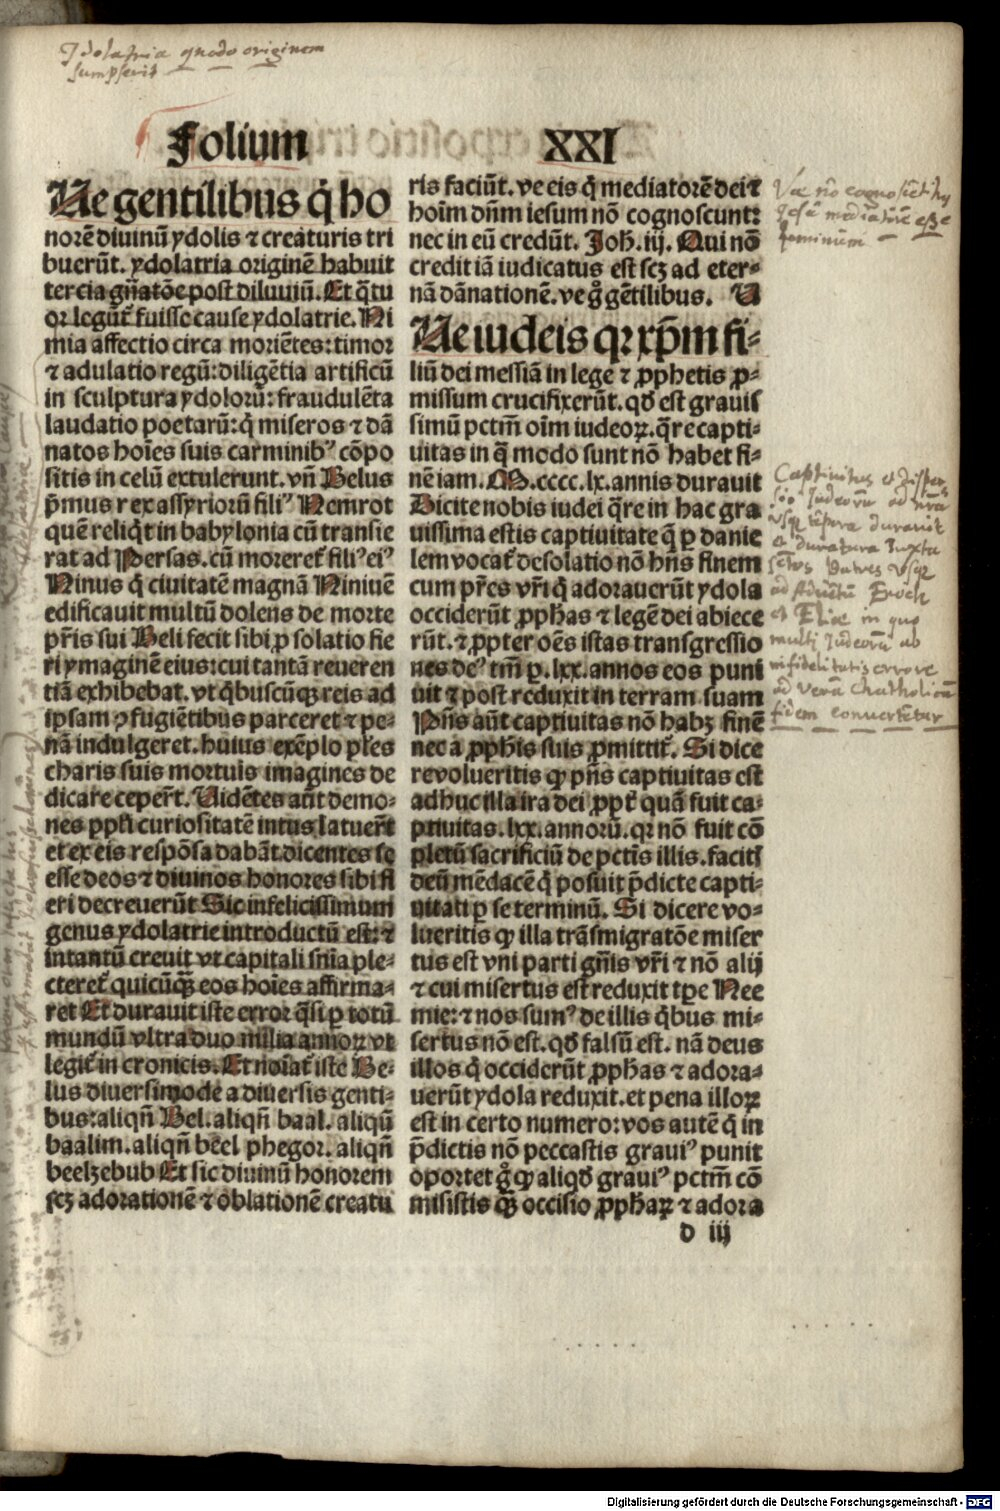 Idolatria quodo originem
sumpserit
Folium XXI
Ue gentilibus q̇ ho
norē diuinū ydolis ⁊ creaturis tri
buerūt. ydolatria originē habuit
tercia gn̄atōe post diluuiū. Et q̄tu
or legūt᷑ fuisse cause ydolatrie. Ni
mia affectio circa moriētes: timor
⁊ adulatio regū: diligētia artificū
in sculptura ydolorū: fraudulēta
laudatio poetarū: q̇ miseros ⁊ dā
natos hoīes suis carminibꝰ cōpo
sitis in celū extulerunt. vn̄ Belus
p̄mus rex assyriorū filiꝰ Nemrot
quē reliq̇t in babylonia cū transie
rat ad Persas. cū moreret᷑ filiꝰ eiꝰ
Ninus q̇ ciuitatē magnā Niniuē
edificauit multū dolens de morte
pr̄is sui Beli fecit sibi ꝓ solatio fie
ri ymaginē eius: cui tantā reueren
tiā exhibebat. vt q̇buscūqꝫ reis ad
ipsam ꝯfugiētibus parceret ⁊ pe-
nā indulgeret. huius exēplo pl̄es
charis suis mortuis imagines de
dicare ceper̄t. Uidētes aūt demo-
nes ppl̄i curiositatē intus latuer̄t
et ex eis respōsa dabāt dicentes se
esse deos ⁊ diuinos honores sibi fi
eri decreuerūt Sic infelicissimum
genus ydolatrie introductū est: ⁊
intantū creuit vt capitali sn̄ia ple-
cteret᷑ quicūqꝫ eos hoīes affirma-
ret Et durauit iste error q̄si ꝑ totū
mundū vltra duo milia annoꝝ vt
legit᷑ in cronicis. Et noīat᷑ iste Be-
lus diuersimode a diuersis genti-
bus: aliqn̄ Bel. aliqn̄ baal. aliqn̄
baalim. aliqn̄ beel phegor. aliqn̄
beelzebub Et sic diuinū honorem
scꝫ adorationē ⁊ oblationē creatu
ris faciūt. ve eis q̇ mediatorē dei ⁊
hoīm dn̄m iesum nō cognoscunt:
nec in eū credūt. Joh̄. iij. Qui nō
credit iā iudicatus est scꝫ ad eter-
nā dānationē. ve gͦ gētilibus. U
Ue iudeis qꝛ xp̄m fi-
liū dei messiā in lege ⁊ ꝓphetis ꝓ-
missum crucifixerūt. qḋ est grauis
simū pctm̄ oīm iudeoꝝ. q̄re capti-
uitas in q̄ modo sunt nō habet fi-
nē iam. M.cccc.lx. annis durauit
Dicite nobis iudei q̄re in hac gra
uissima estis captiuitate q̄ ꝑ danie
lem vocat᷑ desolatio nō hn̄s finem
cum pr̄es vr̄i q̇ adorauerūt ydola
occiderūt ꝓph̄as ⁊ legē dei abiece
rūt. ⁊ ꝓpter oēs istas transgressio
nes deꝰ tm̄ ꝑ. lxx. annos eos puni
uit ⁊ post reduxit in terram suam
Pn̄s aūt captiuitas nō habꝫ finē
nec a ꝓph̄is suis ꝓmittit᷑. Si dice
re volueritis ꝙ pn̄s captiuitas est
adhuc illa ira dei ꝓpt᷑ quā fuit ca-
ptiuitas. lxx. annorū. qꝛ nō fuit cō
pletū sacrificiū de pctīs illis. facitis
deū mēdacē q̇ posuit p̄dicte capti-
uitati ꝑ se terminū. Si dicere vo-
lueritis ꝙ illa trāsmigratōe miser
tus est vni parti gn̄is vr̄i ⁊ nō alij
⁊ cui misertus est reduxit tꝑe Nee
mie: ⁊ nos sumꝰ de illis q̇bus mi-
sertus nō est. qḋ falsū est. nā deus
illos q̇ occiderūt ꝓph̄as ⁊ adora-
uerūt ydola reduxit. et pena illoꝝ
est in certo numero: vos autē q̇ in
p̄dictis nō peccastis grauiꝰ punit
oportet gͦ ꝙ aliqḋ grauiꝰ pctm̄ cō
misistis qꝫ̄ occisio ꝓph̄aꝝ ⁊ adora
d iij
Captiuitas et disper
sio Judeorū ad nr̄a
vsqꝫ tēpora durauit
et duratura Iuxta
sctōs patres vsqꝫ
ad aduentū Enoch
et Eliæ in quo
multi Judeorū ab
infidelitatis errore
ad verā Chatholicā
fidem conuertētur
Digitalisierung gefördert durch die Deutsche Forschungsgemeinschaft - DFG